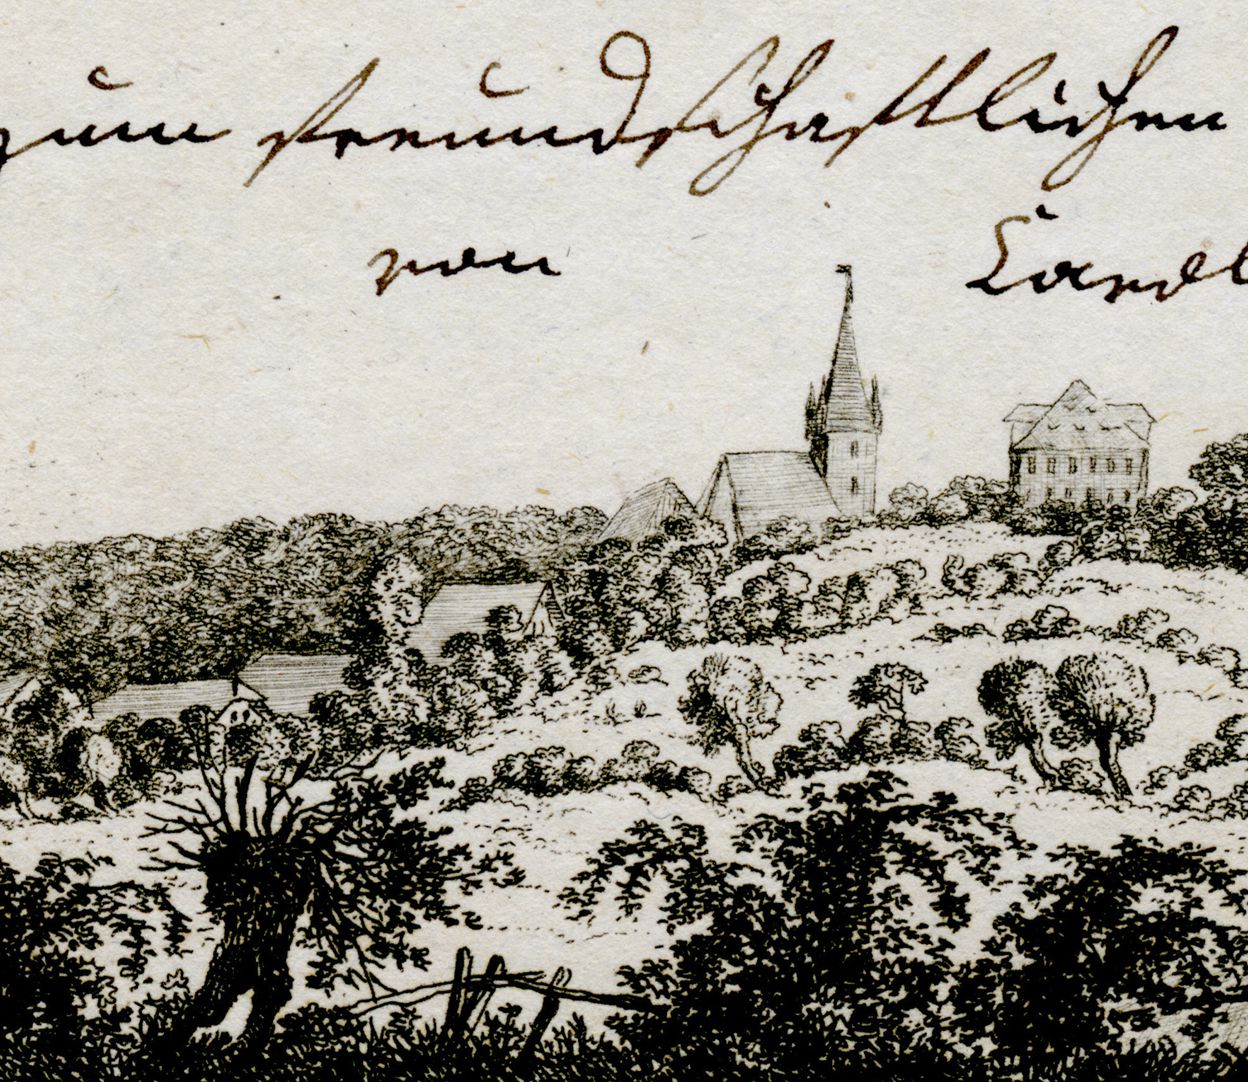 zum freundschaftlichen
von